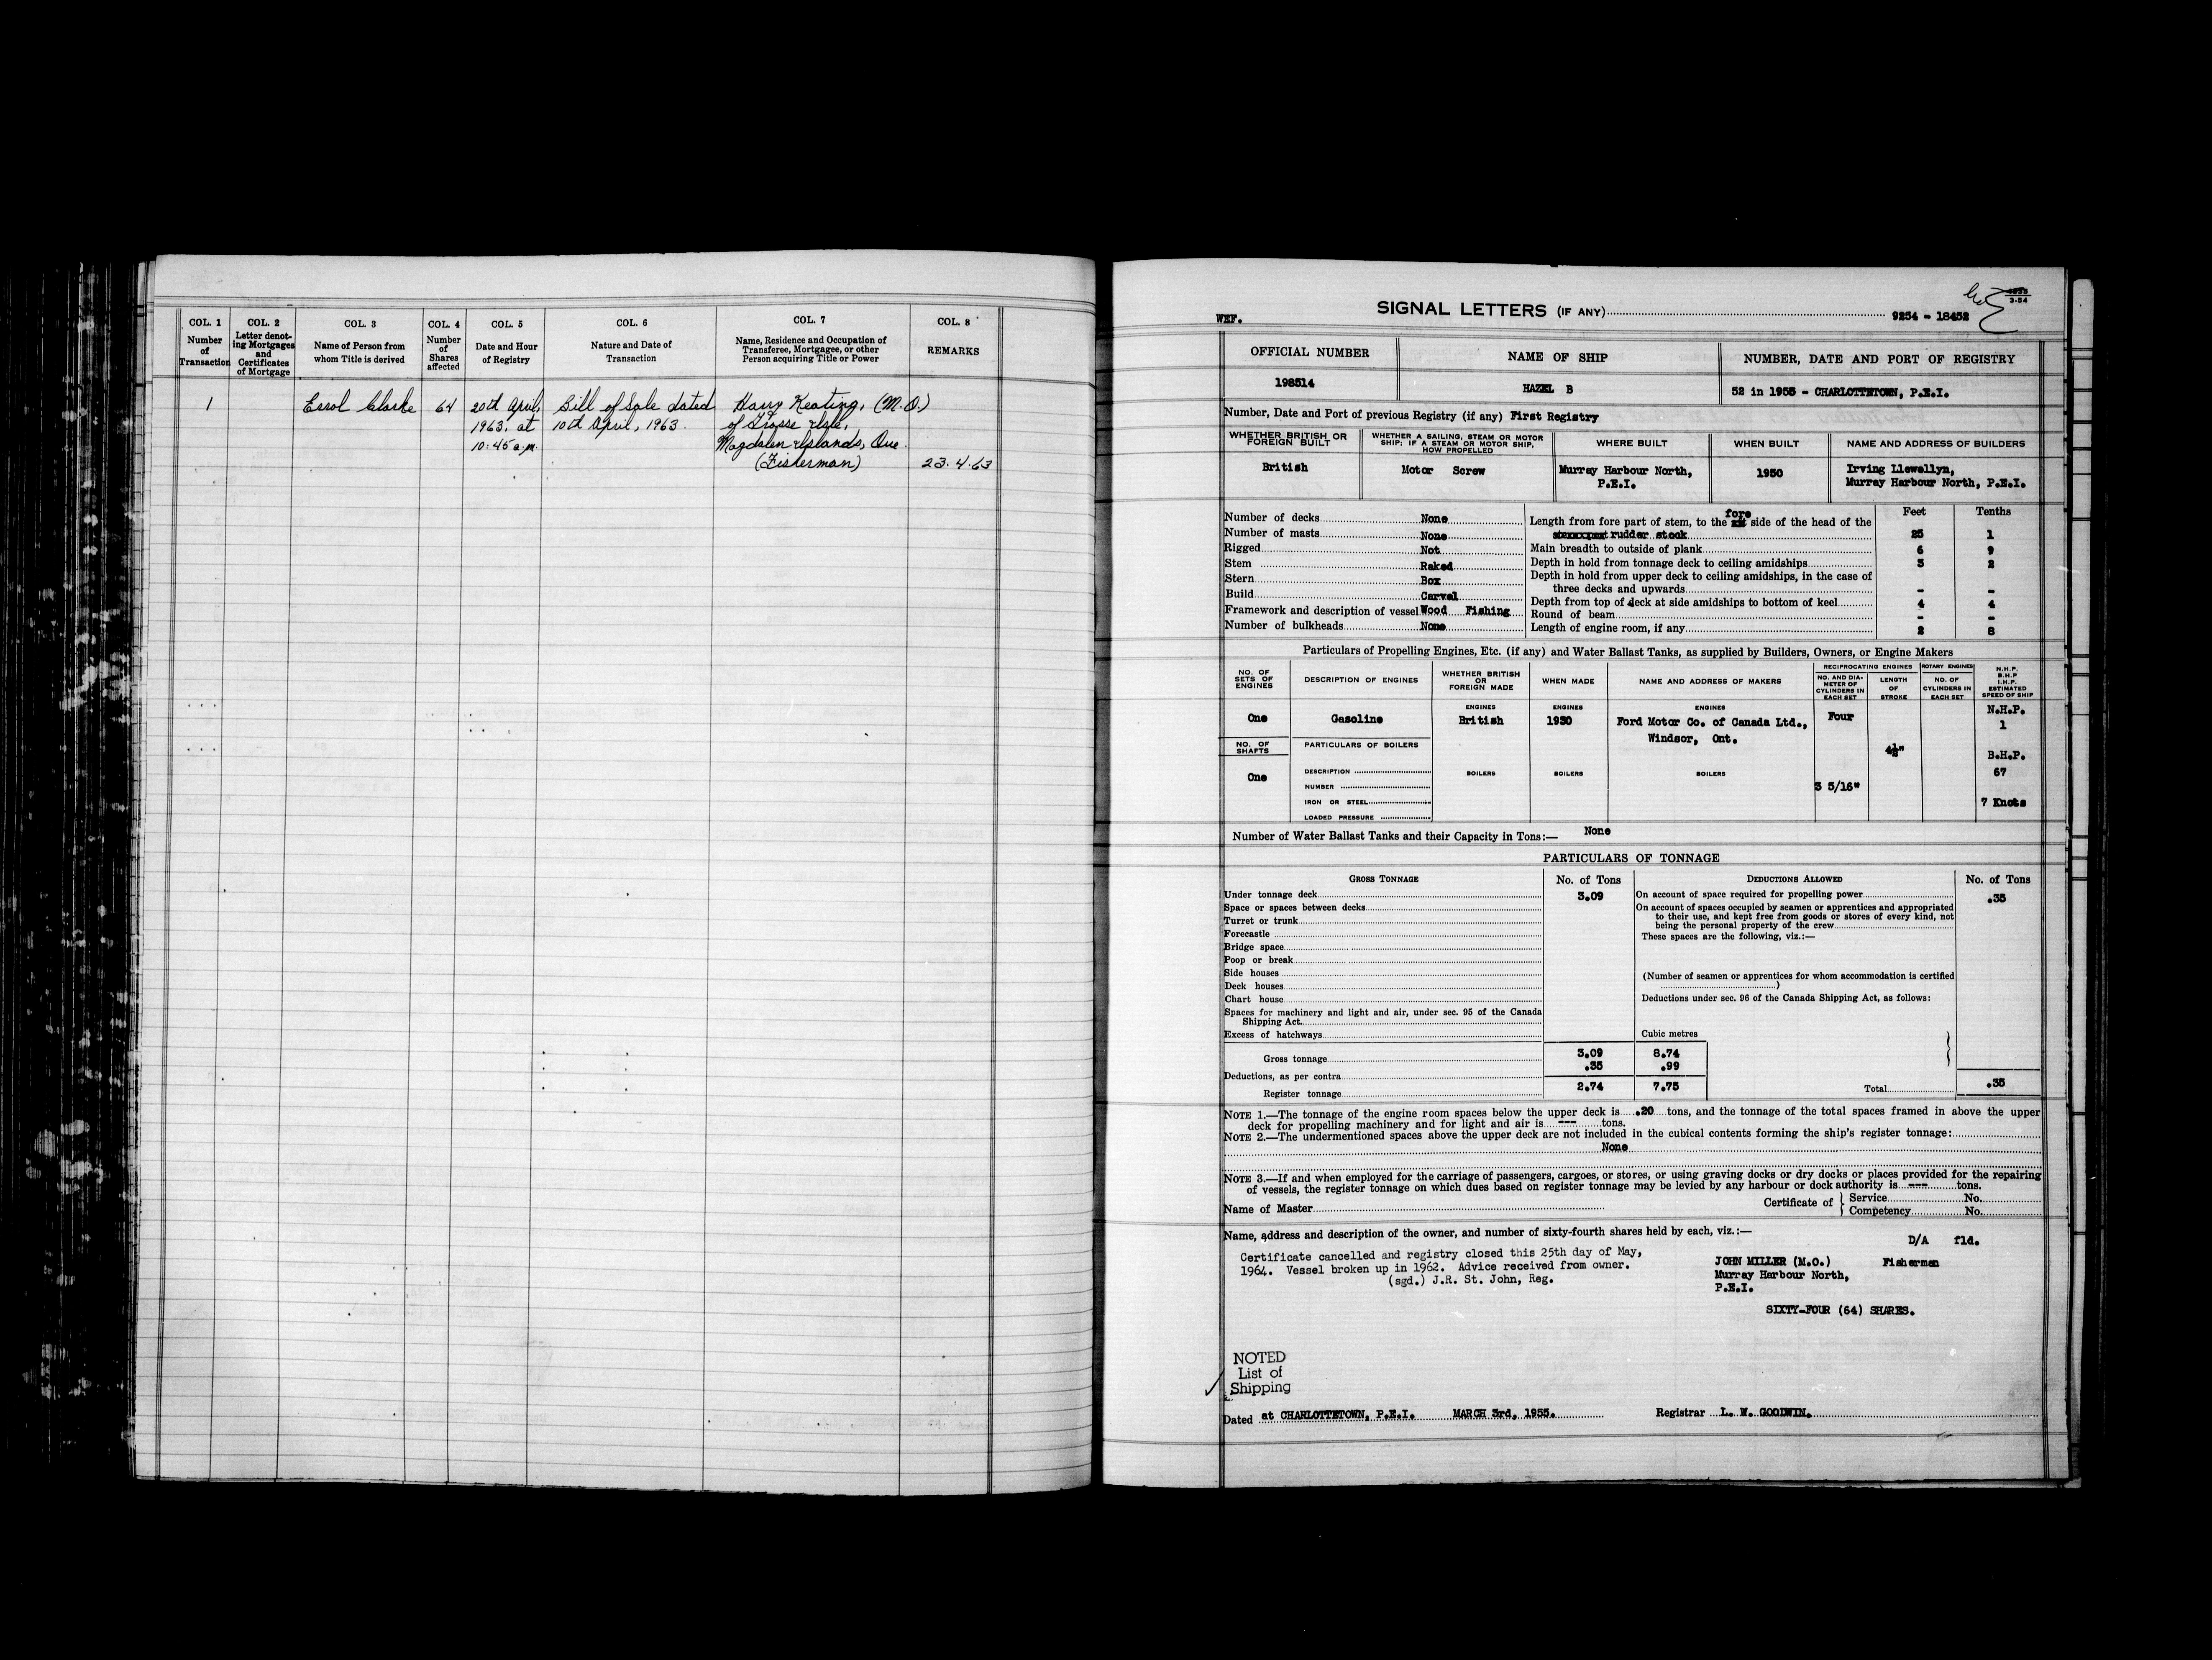 COL. 1 COL. 2 COL. 3 COL. 4 COL. 5 COL. 6 COL. 7 COL. 8
Number of Transaction
Letter denoting Mortgages and Certificates of Mortgage
Name of Person from whom Title is derived
Number of Shares affected
Date and Hour of Registry
Nature and Date of Transaction
Name, Residence and Occupation of Transferee, Mortgagee, or other Person acquiring Title or Power
REMARKS
1 Errol Clarke 64 20th April, Bill of Sale dated Harry Keating, (M.O.)
1963, at 10th April, 1963. of Grosse Isle,
10:45 a.m. Magdalen Islands, Que.
(Fisherman) 23.4.63
3-54
WEF. SIGNAL LETTERS (IF ANY) 9254 - 18452
OFFICIAL NUMBER NAME OF SHIP NUMBER, DATE AND PORT OF REGISTRY
198514 HAZEL B 52 in 1955 - CHARLOTTETOWN, P.E.I.
Number, Date and Port of previous Registry (if any) First Registry
WHETHER BRITISH OR FOREIGN BUILT
WHETHER A SAILING, STEAM OR MOTOR SHIP; IF A STEAM OR MOTOR SHIP, HOW PROPELLED
WHERE BUILT WHEN BUILT NAME AND ADDRESS OF BUILDERS
British Motor Screw Murray Harbour North, 1950 Irving Llewellyn,
P.E.I. Murray Harbour North, P.E.I.
Feet Tenths
Number of decks None
Number of masts None
Rigged Not
Stem Raked
Stern Box
Build Carvel
Framework and description of vessel Wood Fishing
Number of bulkheads None
fore
Length from fore part of stem, to the side of the head of the
rudder stock 25 1
Main breadth to outside of plank 6 9
Depth in hold from tonnage deck to ceiling amidships 3 2
Depth in hold from upper deck to ceiling amidships, in the case of
three decks and upwards - -
Depth from top of deck at side amidships to bottom of keel 4 4
Round of beam - -
Length of engine room, if any 2 8
Particulars of Propelling Engines, Etc. (if any) and Water Ballast Tanks, as supplied by Builders, Owners, or Engine Makers
NO. OF SETS OF ENGINES
DESCRIPTION OF ENGINES
WHETHER BRITISH OR FOREIGN MADE
WHEN MADE
NAME AND ADDRESS OF MAKERS
RECIPROCATING ENGINES ROTARY ENGINES
NO. AND DIAMETER OF CYLINDERS IN EACH SET
LENGTH OF STROKE
NO. OF CYLINDERS IN EACH SET
N.H.P. B.H.P I.H.P. ESTIMATED SPEED OF SHIP
ENGINES ENGINES ENGINES N.H.P.
One Gasoline British 1930 Ford Motor Co. of Canada Ltd., Four 1
Windsor, Ont.
NO. OF SHAFTS PARTICULARS OF BOILERS 4½" B.H.P.
One DESCRIPTION BOILERS BOILERS BOILERS 67
NUMBER 3 5/16"
IRON OR STEEL 7 Knots
LOADED PRESSURE
Number of Water Ballast Tanks and their Capacity in Tons:— None
PARTICULARS OF TONNAGE
GROSS TONNAGE No. of Tons DEDUCTIONS ALLOWED No. of Tons
Under tonnage deck 3.09
Space or spaces between decks
Turret or trunk
Forecastle
Bridge space
Poop or break
Side houses
Deck houses
Chart house
Spaces for machinery and light and air, under sec. 95 of the Canada
Shipping Act.
Excess of hatchways
On account of space required for propelling power .35
On account of spaces occupied by seamen or apprentices and appropriated
to their use, and kept free from goods or stores of every kind, not
being the personal property of the crew
These spaces are the following, viz.:—
(Number of seamen or apprentices for whom accommodation is certified
)
Deductions under sec. 96 of the Canada Shipping Act, as follows:
Cubic metres
Gross tonnage 3.09 8.74
Deductions, as per contra .35 .99
Register tonnage 2.74 7.75 Total .35
NOTE 1.—The tonnage of the engine room spaces below the upper deck is .20 tons, and the tonnage of the total spaces framed in above the upper
deck for propelling machinery and for light and air is --- tons.
NOTE 2.—The undermentioned spaces above the upper deck are not included in the cubical contents forming the ship's register tonnage:
None
NOTE 3.—If and when employed for the carriage of passengers, cargoes, or stores, or using graving docks or dry docks or places provided for the repairing
of vessels, the register tonnage on which dues based on register tonnage may be levied by any harbour or dock authority is --- tons.
Name of Master Certificate of { Service No.
Competency No.
Name, address and description of the owner, and number of sixty-fourth shares held by each, viz.:—
D/A fld.
Certificate cancelled and registry closed this 25th day of May,
1964. Vessel broken up in 1962. Advice received from owner.
(sgd.) J.R. St. John, Reg.
JOHN MILLER (M.O.) Fisherman
Murray Harbour North,
P.E.I.
SIXTY-FOUR (64) SHARES.
NOTED
List of
Shipping
Dated at CHARLOTTETOWN, P.E.I. MARCH 3rd, 1955. Registrar L. W. GOODWIN.